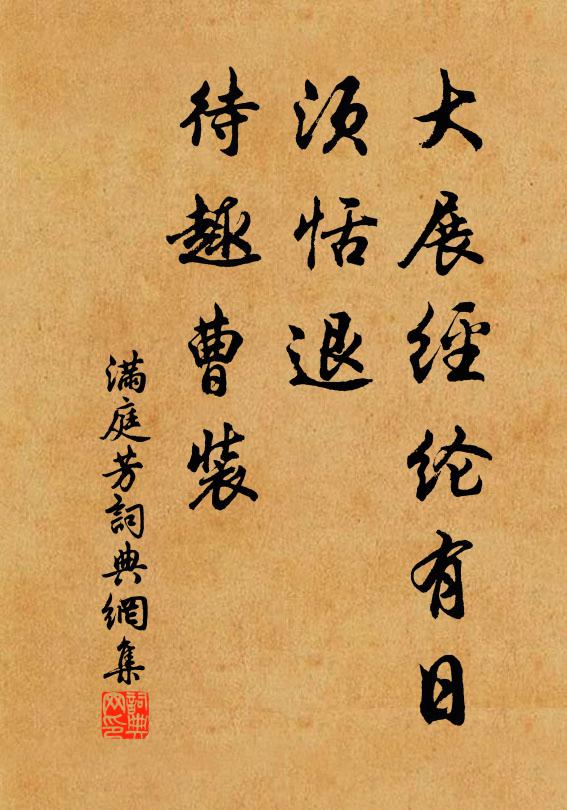 大展經纶有日
须恬退
待趣曹裝
满庭芳詞典網集
詞典网印